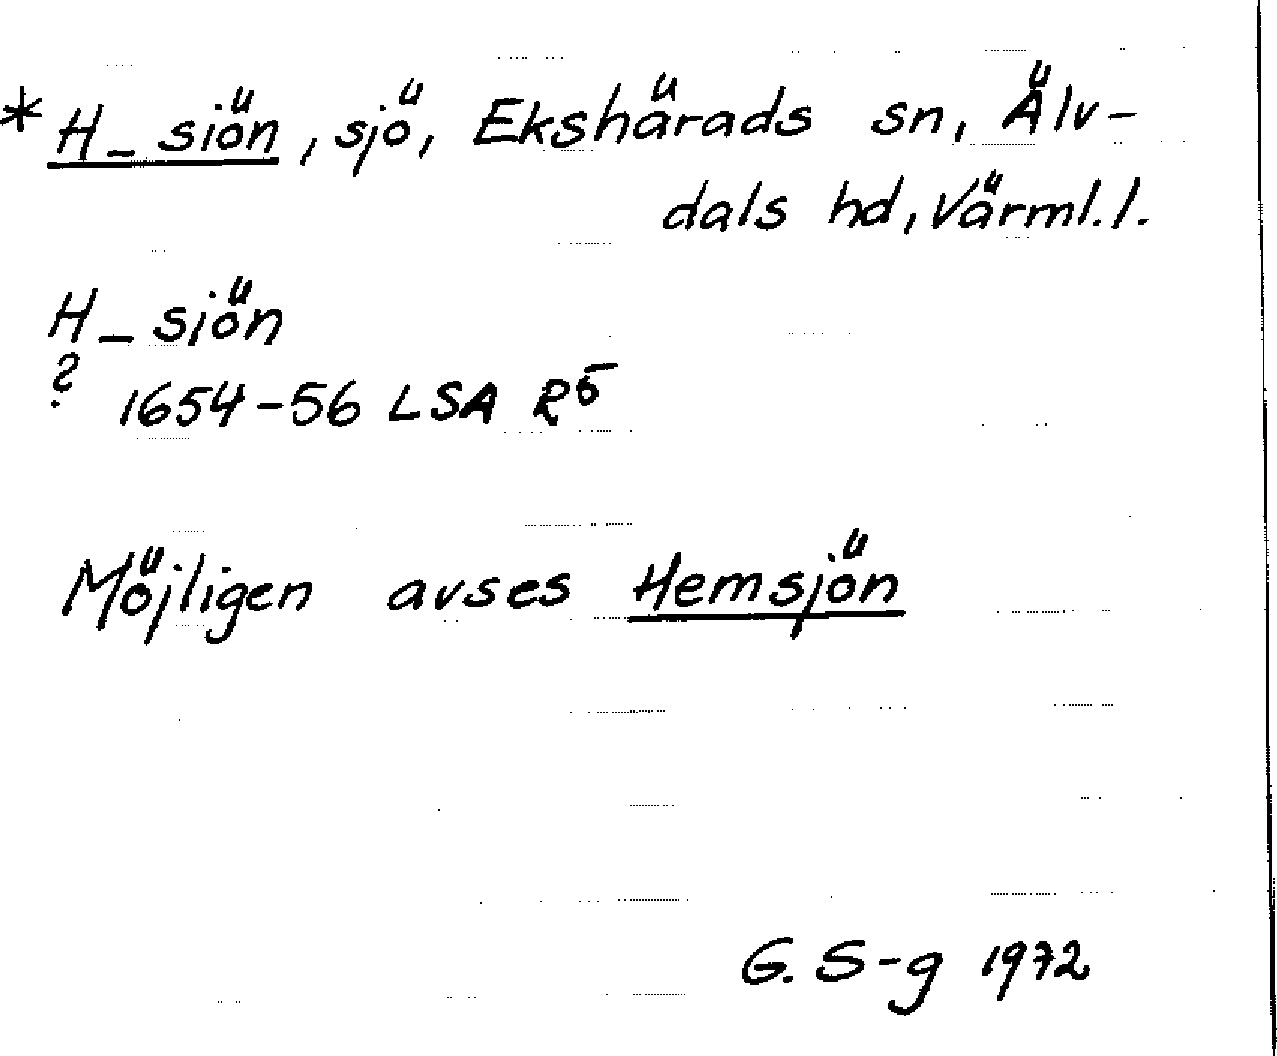 * H_siön, sjö, Ekshärads sn, Älv-
dals hd, Värml. l.
H_siön
? 1654-56 LSA R5
Möjligen avses Hemsjön
G. S-g 1972